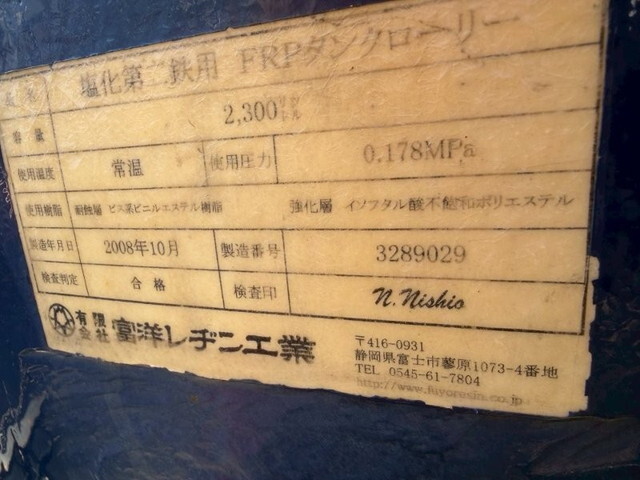 品名 塩化第二鉄用 FRPタンクローリー
容量 2,300リットル
使用温度 常温 使用圧力 0.178MPa
使用樹脂 耐蝕層 ビス系ビニルエステル樹脂 強化層 イソフタル酸不飽和ポリエステル
製造年月日 2008年10月 製造番号 3289029
検査判定 合格 検査印 N.Nishio
有限会社 富洋レヂン工業
〒416-0931
静岡県富士市蓼原1073-4番地
TEL 0545-61-7804
http://www.fuyoresin.co.jp